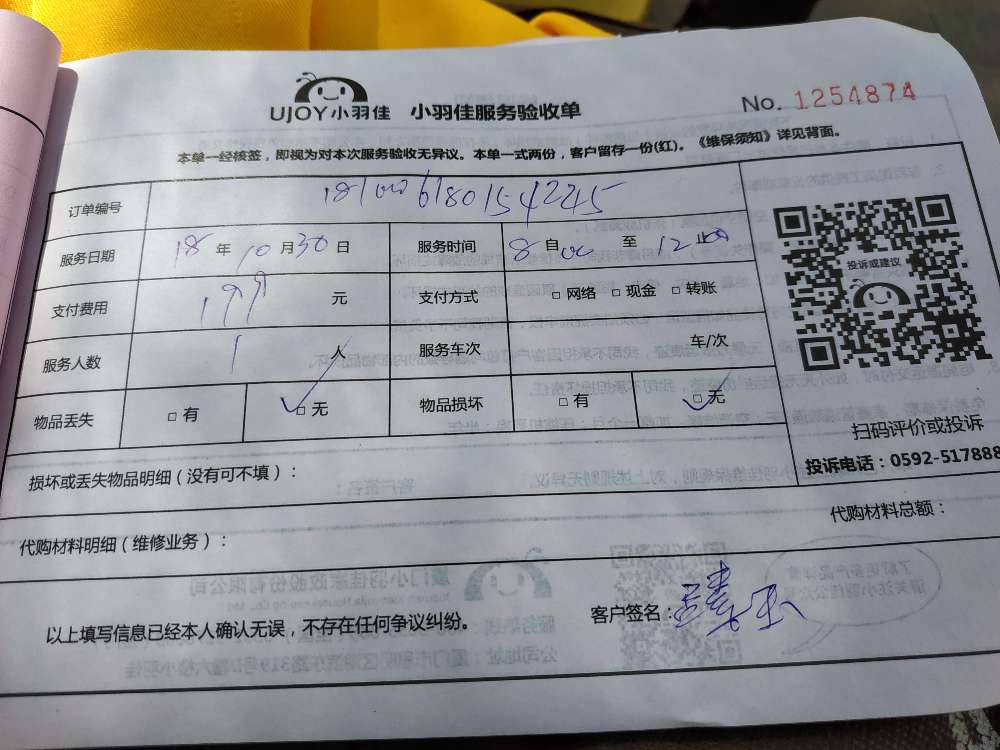 UJOY小羽佳 小羽佳服务验收单 No. 1254874
本单一经核签，即视为对本次服务验收无异议。本单一式两份，客户留存一份(红)。《维保须知》详见背面。
订单编号
服务日期 18 年 10 月 30 日 服务时间 自 8 00 至 12 止
支付费用 199 元 支付方式 □ 网络 □ 现金 □ 转账
服务人数 1 人 服务车次 车/次
物品丢失 □ 有 ✓□ 无 物品损坏 □ 有 ✓□ 无
投诉或建议
扫码评价或投诉
投诉电话：0592-517888
损坏或丢失物品明细（没有可不填）：
代购材料明细（维修业务）： 代购材料总额：
以上填写信息已经本人确认无误，不存在任何争议纠纷。 客户签名：